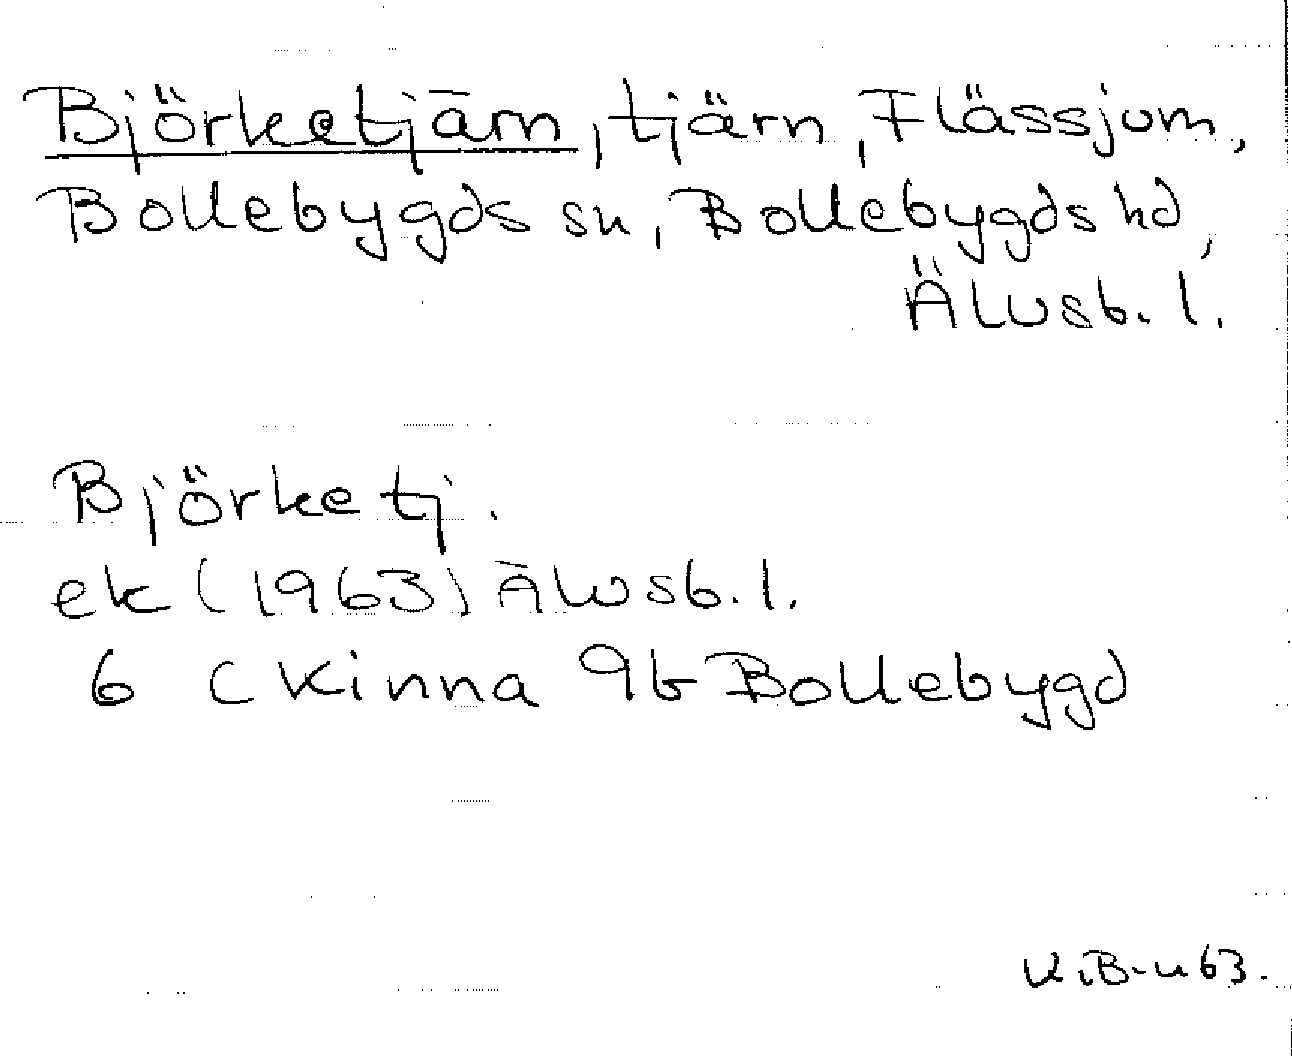 Björketjärn, tjärn, Flässjum,
Bollebygds sn, Bollebygds hd,
Älvsb. l.
Björketj.
ek (1963) Älvsb. l.
6 C Kinna 9b Bollebygd
K.B-n 63.